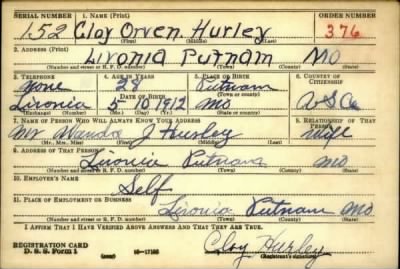 SERIAL NUMBER 1. NAME (Print) ORDER NUMBER
152 Cloy Orven Hurley 376
(First) (Middle) (Last)
2. ADDRESS (Print)
Livonia Putnam MO
(Number and street or R. F. D. number) (Town) (County) (State)
3. TELEPHONE 4. AGE IN YEARS 5. PLACE OF BIRTH 6. COUNTRY OF CITIZENSHIP
None 28 Putnam
DATE OF BIRTH (Town or county)
Livonia 5-10 1912 Mo U S A
(Exchange) (Number) (Mo.) (Day) (Yr.) (State or country)
7. NAME OF PERSON WHO WILL ALWAYS KNOW YOUR ADDRESS 8. RELATIONSHIP OF THAT PERSON
Wanda J Hurley wife
(Mr., Mrs., Miss) (First) (Middle) (Last)
9. ADDRESS OF THAT PERSON
Livonia Putnam Mo
(Number and street or R. F. D. number) (Town) (County) (State)
10. EMPLOYER'S NAME
Self
11. PLACE OF EMPLOYMENT OR BUSINESS
Livonia Putnam Mo.
(Number and street or R. F. D. number) (Town) (County) (State)
I AFFIRM THAT I HAVE VERIFIED ABOVE ANSWERS AND THAT THEY ARE TRUE.
REGISTRATION CARD
D. S. S. Form 1 (over) Cloy Hurley
(Registrant's signature)